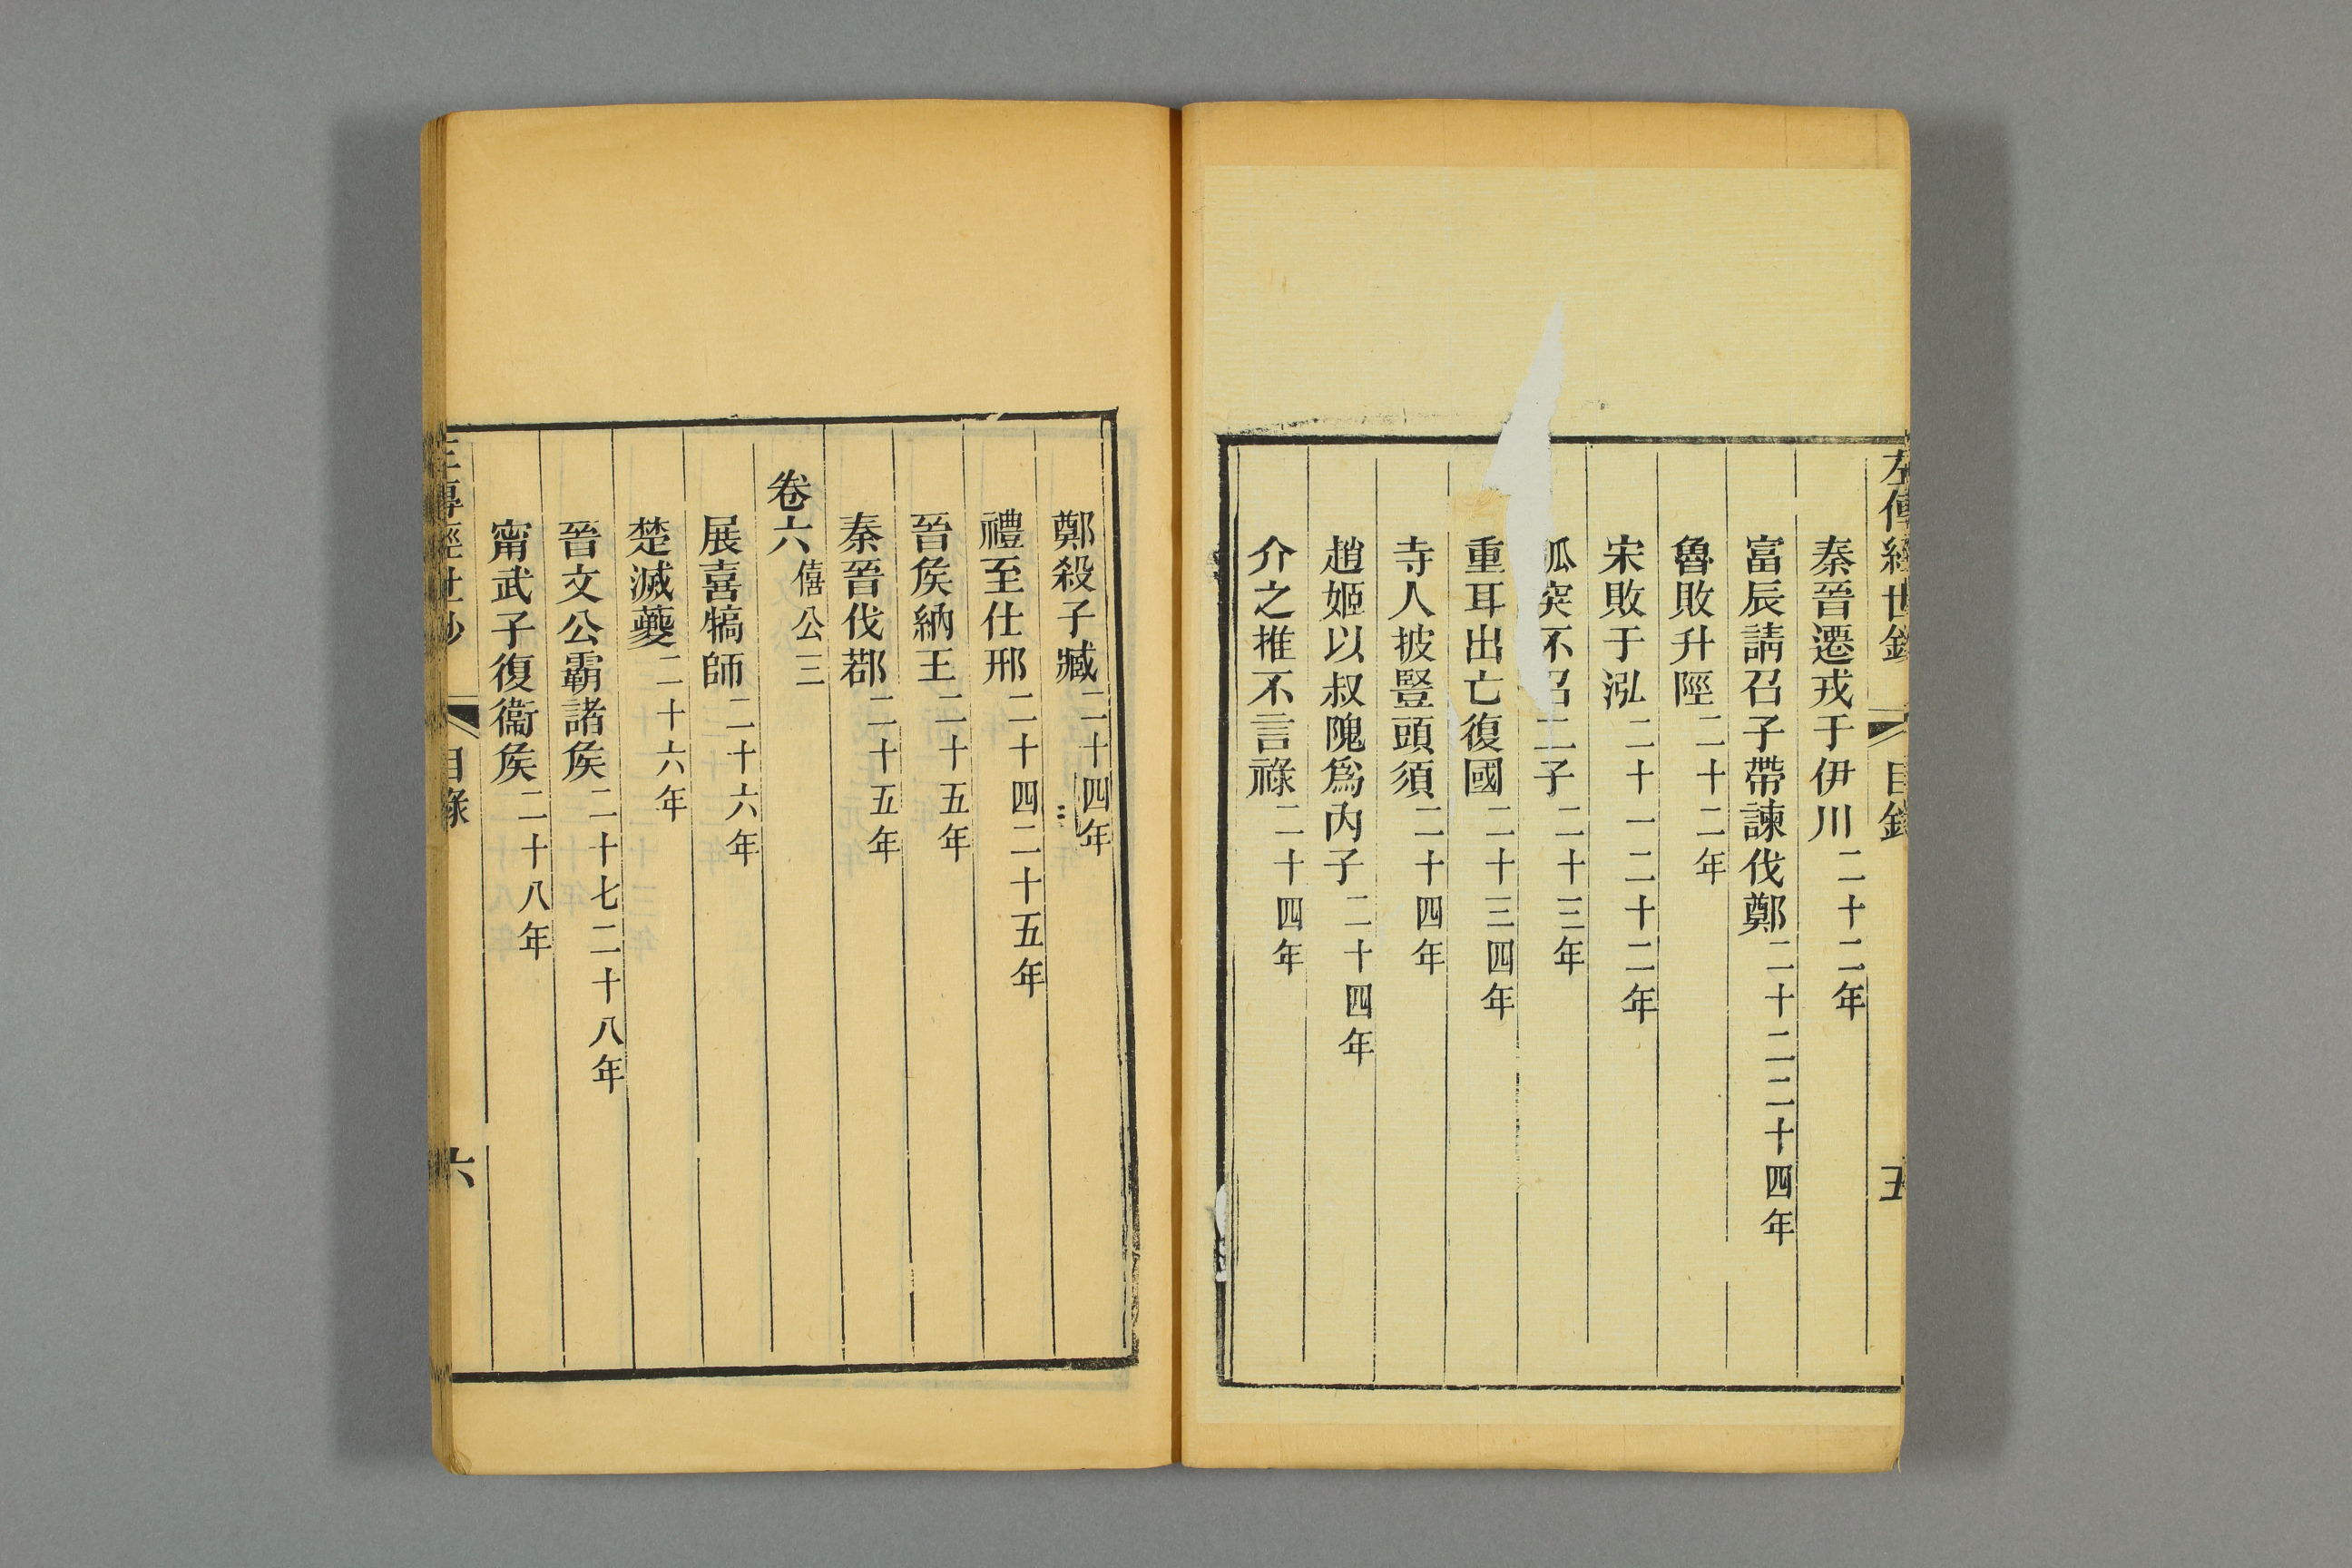 左傳經世鈔 目錄 五
秦晉遷戎于伊川二十二年
富辰請召子帶諫伐鄭二十二二十四年
魯敗升陘二十二年
宋敗于泓二十一二十二年
狐突不召二子二十三年
重耳出亡復國二十三四年
寺人披豎頭須二十四年
趙姬以叔隗爲內子二十四年
介之推不言祿二十四年
鄭殺子臧二十四年
禮至仕邢二十四二十五年
晉矦納王二十五年
秦晉伐鄀二十五年
卷六僖公三
展喜犒師二十六年
楚滅夔二十六年
晉文公霸諸矦二十七二十八年
甯武子復衞矦二十八年
左傳經世鈔 目錄 六